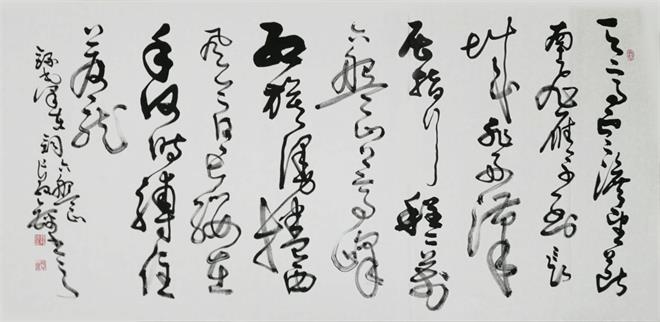 天高云淡望断
南飞雁不到长
城非好汉
屈指行程二万
六盘山上高峰
红旗漫卷西
风今日长缨在
手何时缚住
苍龙
录毛泽东词六盘山